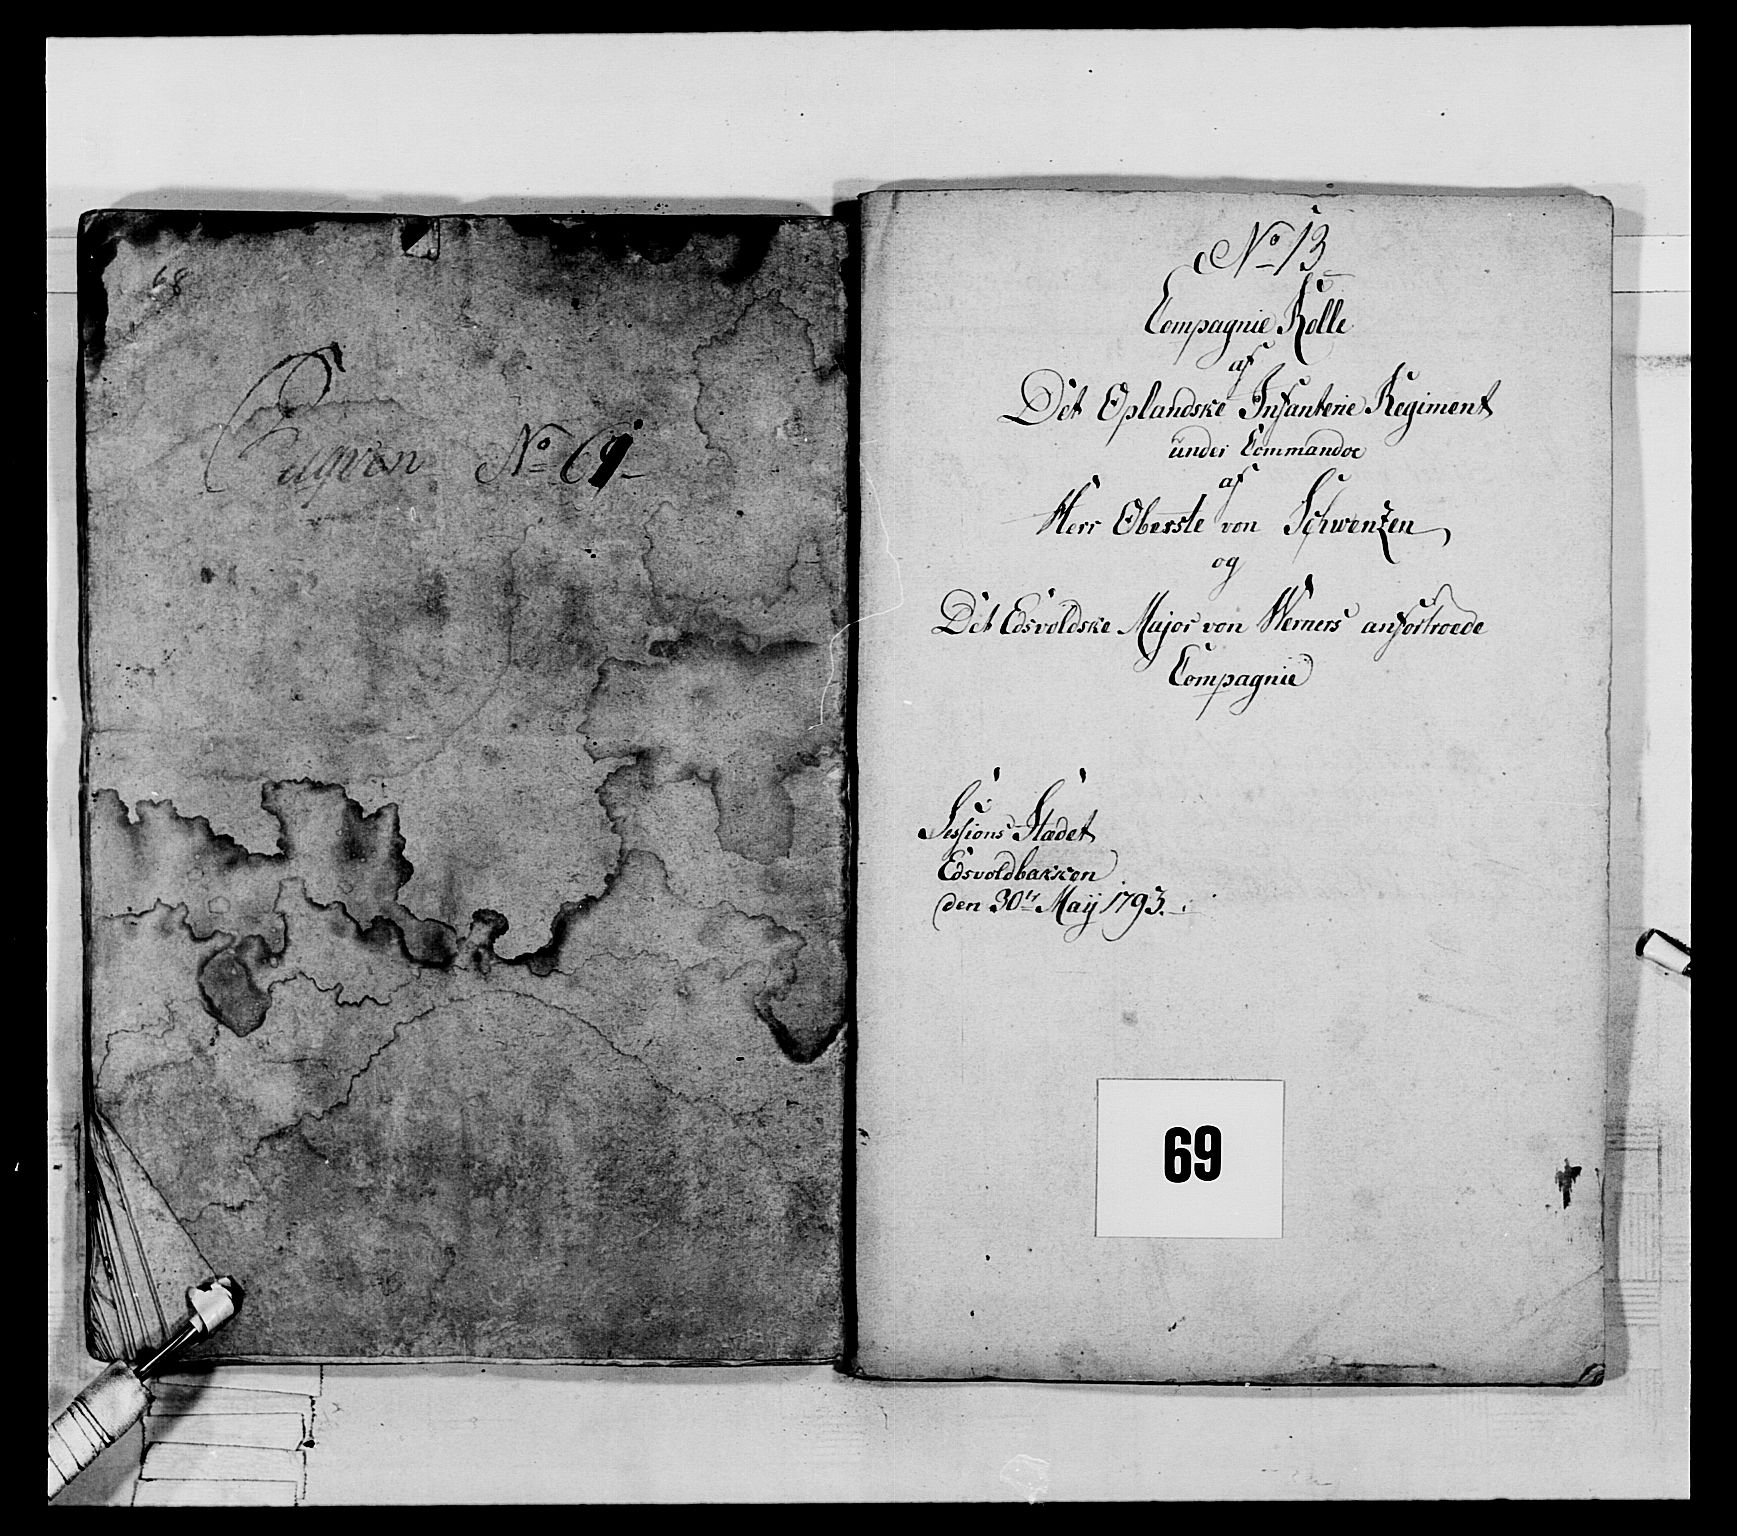 68
No 69
No 13
Compagnie Rolle
af
Det Oplandske Infanterie Regiment
under Commandoe
af
Herr Oberste von Schwenzen
og
Det Edsvoldske Major von Werners anfortroede
Compagnie
Sessions Stædet
Edsvoldbakken
den 30te Maij 1793.
69